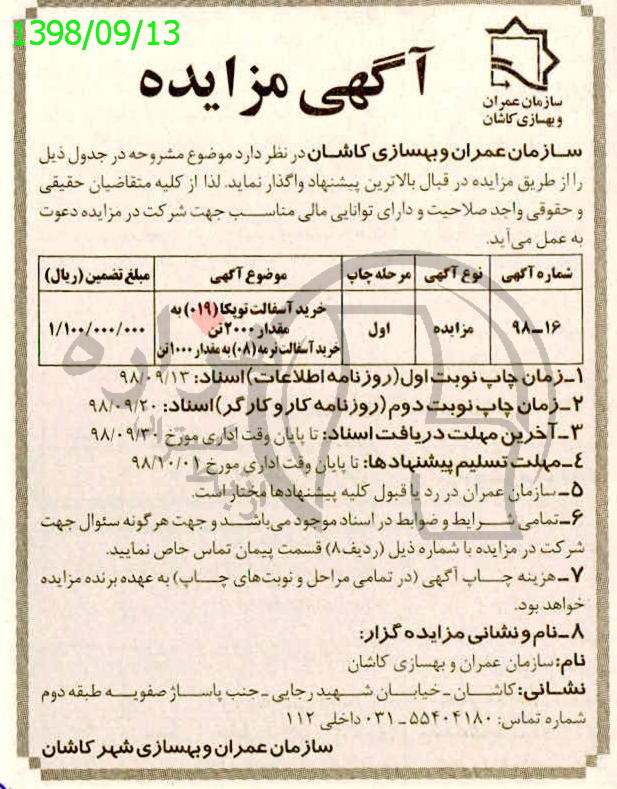 1398/09/13
سازمان عمران
و بهسازی کاشان
آگهی مزایده
سازمان عمران و بهسازی کاشان در نظر دارد موضوع مشروحه در جدول ذیل
را از طریق مزایده در قبال بالاترین پیشنهاد واگذار نماید. لذا از کلیه متقاضیان حقیقی
و حقوقی واجد صلاحیت و دارای توانایی مالی مناسب جهت شرکت در مزایده دعوت
به عمل می‌آید.
شماره آگهی نوع آگهی مرحله چاپ موضوع آگهی مبلغ تضمین (ریال)
خرید آسفالت توپکا (۰۱۹) به
۹۸-۱۶ مزایده اول مقدار ۲۰۰۰ تن ۱/۱۰۰/۰۰۰/۰۰۰
خرید آسفالت نرمه (۰۸) به مقدار ۱۰۰۰ تن
۱- زمان چاپ نوبت اول (روزنامه اطلاعات) اسناد: ۹۸/۰۹/۱۳
۲- زمان چاپ نوبت دوم (روزنامه کار و کارگر) اسناد: ۹۸/۰۹/۲۰
۳- آخرین مهلت دریافت اسناد: تا پایان وقت اداری مورخ ۹۸/۰۹/۳۰
۴- مهلت تسلیم پیشنهادها: تا پایان وقت اداری مورخ ۹۸/۱۰/۰۱
۵- سازمان عمران در رد یا قبول کلیه پیشنهادها مختار است.
۶- تمامی شرایط و ضوابط در اسناد موجود می‌باشد و جهت هر گونه سئوال جهت
شرکت در مزایده با شماره ذیل (ردیف ۸) قسمت پیمان تماس حاصل نمایید.
۷- هزینه چاپ آگهی (در تمامی مراحل و نوبت‌های چاپ) به عهده برنده مزایده
خواهد بود.
۸- نام و نشانی مزایده گزار:
نام: سازمان عمران و بهسازی کاشان
نشانی: کاشان - خیابان شهید رجایی - جنب پاساژ صفویه طبقه دوم
شماره تماس: ۵۵۴۰۴۱۸۰ - ۰۳۱ داخلی ۱۱۲
سازمان عمران و بهسازی شهر کاشان